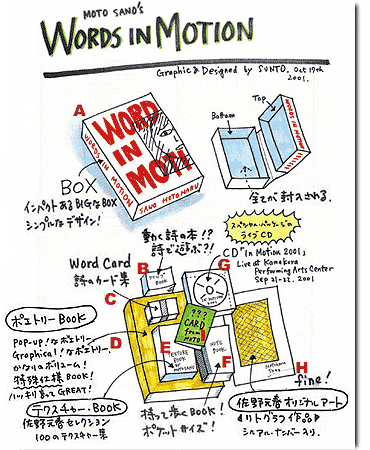 MOTO SANO'S
WORDS IN MOTION
Graphic & Designed by SUNTO, Oct 17th
2001.
A
WORD
IN
MOTI
WORDS IN MOTION
SANO MOTOHARU
Bottom
Top
BOX
インパクトあるBIGなBOX
シンプルなデザイン!
全てが封入される。
動く詩の本!?
詩で遊ぶ?!
スペシャル・パッケージの
ライブCD
Word Card
詩のカード集
B
BOOK
G
CD "In Motion 2001"
Live at Kamakura
Performing Arts Center
Sep 21-22, 2001
IN MOTION
2001
C
ポエトリーBOOK
D
POP-UP!なポエトリー
Graphical!なポエトリー,
かなりのボリューム!
特殊仕様BOOK!
ハッキリ言ってGREAT!
???
CARD
from
MOTO
E
TEXTURE
BOOK
by
MOTO SANO
NOTE
BOOK
F
H
fine!
テクスチャー・BOOK
佐野元春セレクション
100のテクスチャー集
持って歩くBOOK!
ポケットサイズ!
佐野元春オリジナルアート
リトグラフ作品
シリアルナンバー入り。